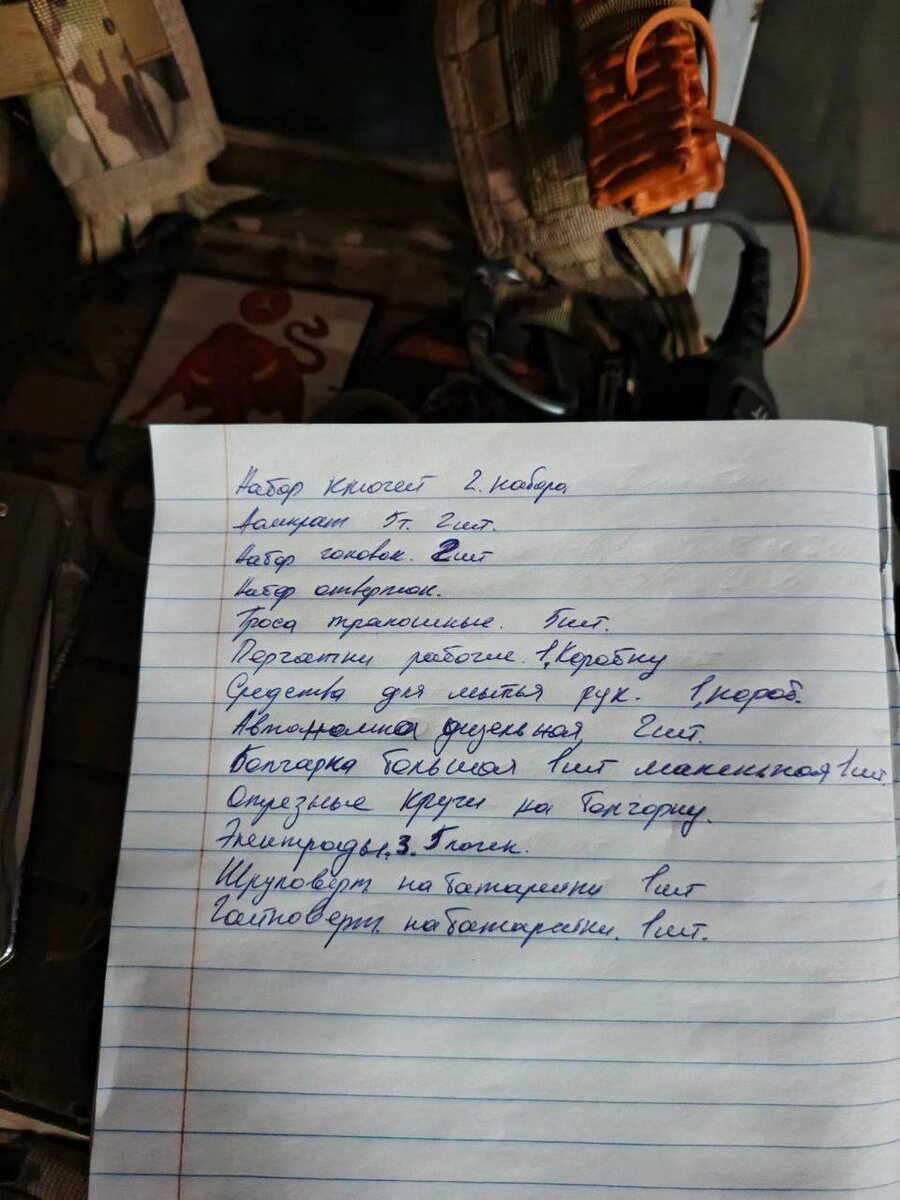 Набор ключей 2. набора
Домкрат 5т. 2шт.
Набор головок. 2шт
Набор отверток.
Троса тракошные. 5шт.
Перчатки рабочие. 1,Коробку
Средства для мытья рук. 1,короб.
Автаномка дизельная 2шт.
Болгарка большая 1шт маленькая 1шт
Отрезные круги на болгарку.
Электроды.3. 5 пачек.
Шруповерт на батарейки 1шт
Гайковерт. на батарейки. 1шт.